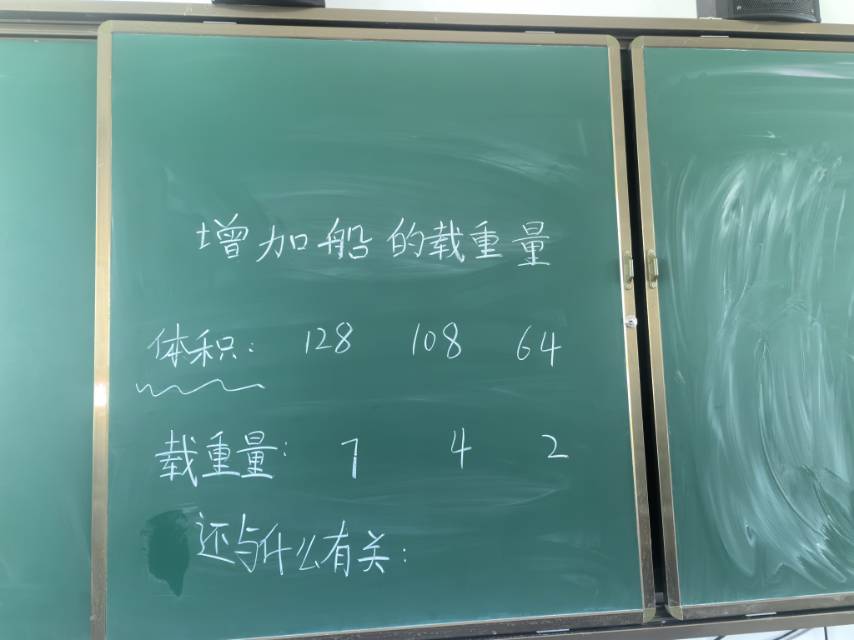 增加船的载重量
体积: 128 108 64
载重量: 7 4 2
还与什么有关: